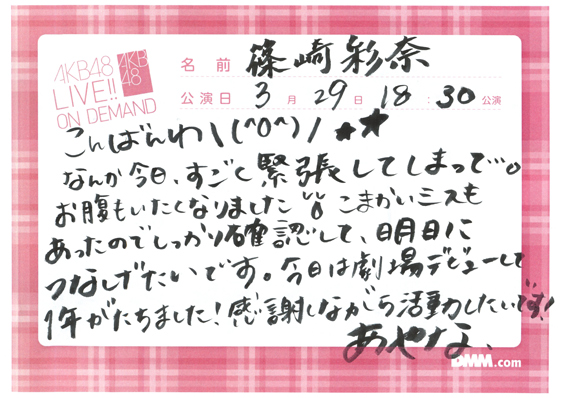 AKB48
LIVE!!
ON DEMAND
AKB
48
名前 篠崎彩奈
公演日 3月29日 18:30公演
こんばんわ\(^o^)/★★
なんか今日、すごく緊張してしまって…。
お腹もいたくなりました こまかいミスも
あったのでしっかり確認して、明日に
つなげたいです。今日は劇場デビューして
1年がたちました!感謝しながら活動したいです!
あやな、
DMM.com